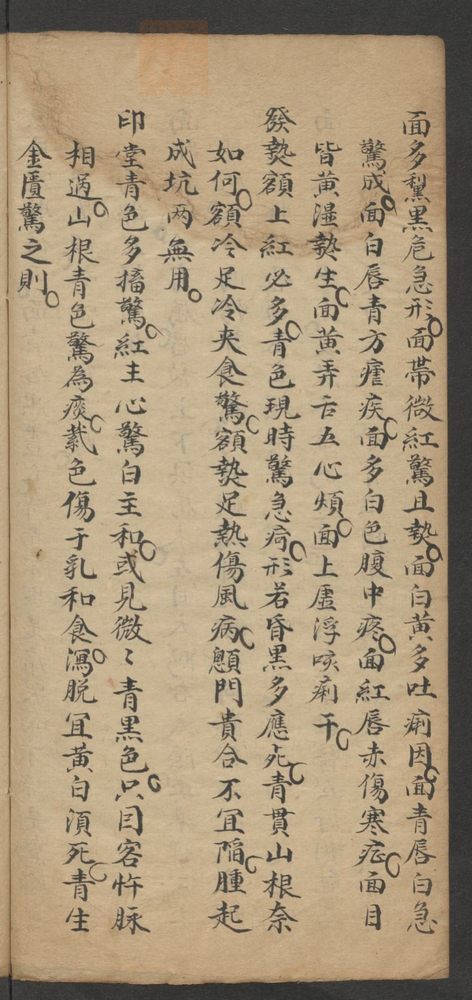 面多黧黒危急形面帯微紅驚且熱面白黄多吐痢因面青唇白急
驚成面白唇青方瘧疾面多白色腹中疼面紅唇赤傷寒症面目
皆黄湿熱生面黄弄舌五心煩面上虚浮咳痢干
發熱額上紅必多青色現時驚急疴形若昏黒多應死青貫山根奈
如何額冷足冷夾食驚額熱足熱傷風病顖門貴合不冝陷腫起
成坑两無用
印堂青色多搐驚紅主心驚白主和或見微〻青黒色只因客忤脉
相過山根青色驚為痰紫色傷于乳和食瀉脱冝黄白須死青生
金匱驚之則